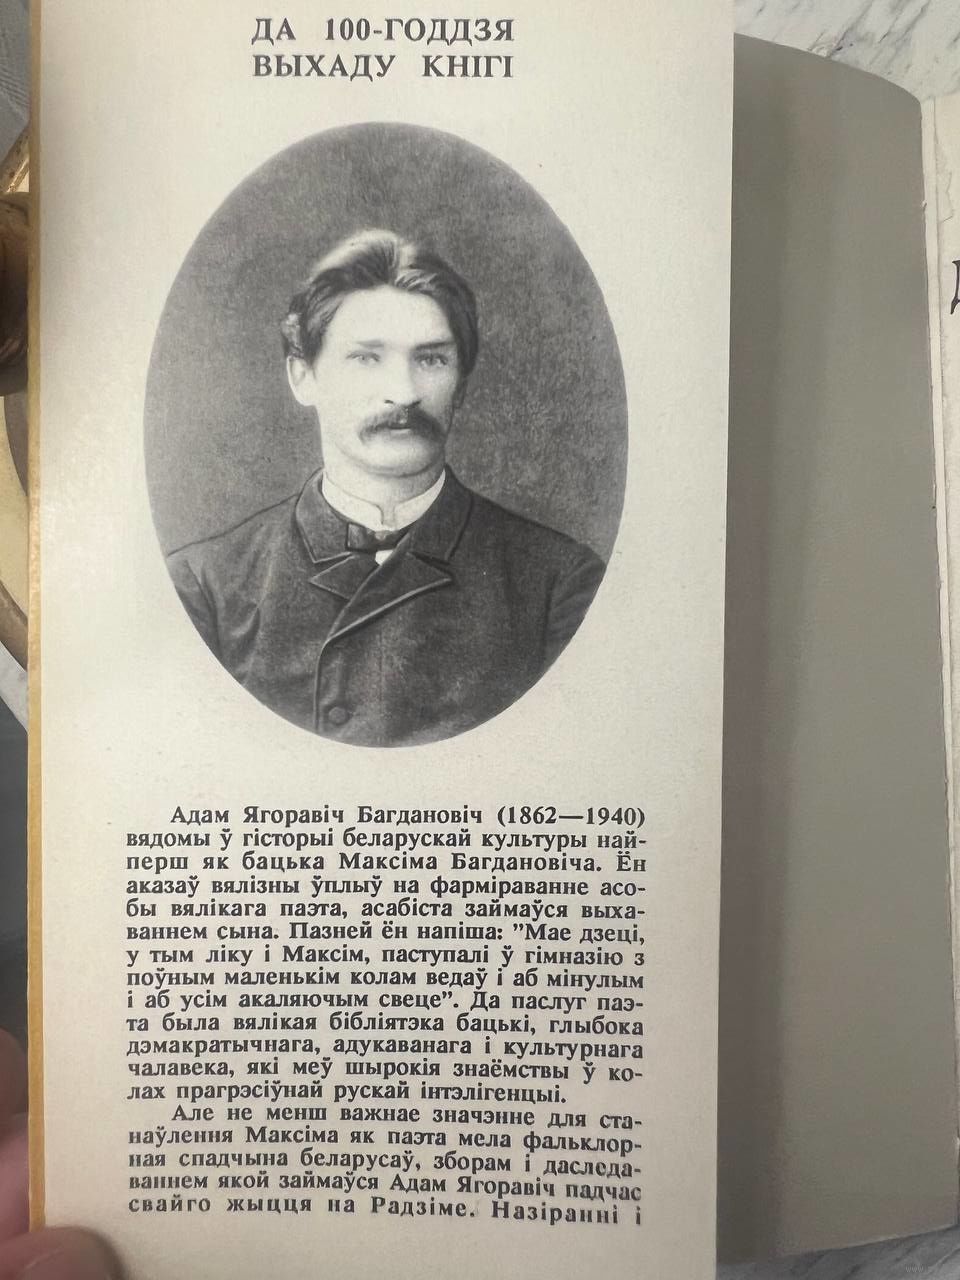 ДА 100-ГОДДЗЯ
ВЫХАДУ КНІГІ
Адам Ягоравіч Багдановіч (1862—1940)
вядомы ў гісторыі беларускай культуры най-
перш як бацька Максіма Багдановіча. Ён
аказаў вялізны ўплыў на фарміраванне асо-
бы вялікага паэта, асабіста займаўся выха-
ваннем сына. Пазней ён напіша: ”Мае дзеці,
у тым ліку і Максім, паступалі ў гімназію з
поўным маленькім колам ведаў і аб мінулым
і аб усім акаляючым свеце”. Да паслуг паэ-
та была вялікая бібліятэка бацькі, глыбока
дэмакратычнага, адукаванага і культурнага
чалавека, які меў шырокія знаёмствы ў ко-
лах прагрэсіўнай рускай інтэлігенцыі.
Але не менш важнае значэнне для ста-
наўлення Максіма як паэта мела фальклор-
ная спадчына беларусаў, зборам і даследа-
ваннем якой займаўся Адам Ягоравіч падчас
свайго жыцця на Радзіме. Назіранні і